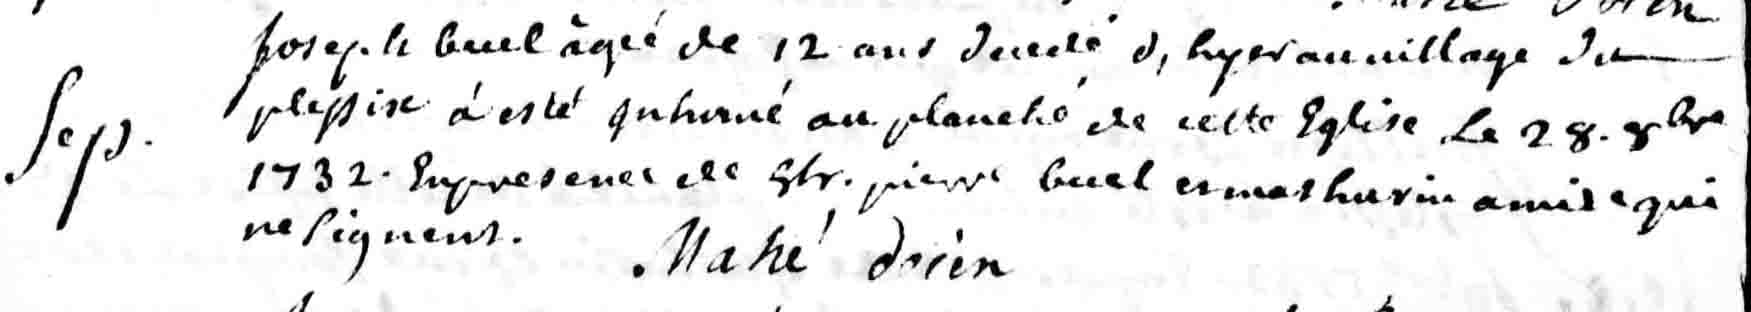 Joseph buel âgé de 12 ans decedé d'hyer au village du
Sep. plessix à esté inhumé au planché de cette Eglise Le 28. 8bre
1732. En presence de pierre buel et mathurin amisse qui
ne signent.
Mahé doïen